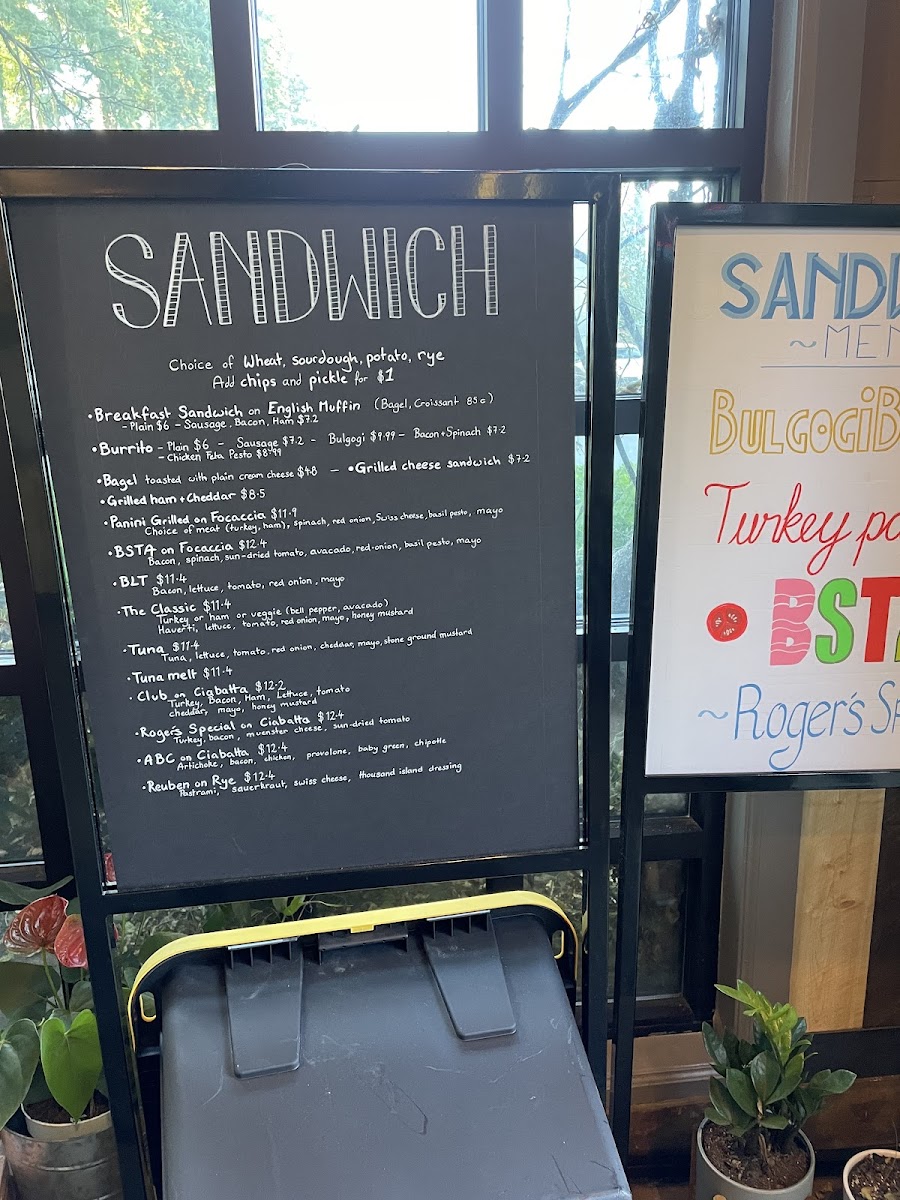 SANDWICH
Choice of Wheat, sourdough, potato, rye
Add chips and pickle for $1
•Breakfast Sandwich on English Muffin (Bagel, Croissant 85¢)
-Plain $6 - Sausage, Bacon, Ham $7.2
•Burrito - Plain $6 - Sausage $7.2 - Bulgogi $9.99 - Bacon+Spinach $7.2
-Chicken Feta Pesto $8.99
•Bagel toasted with plain cream cheese $4.8 - •Grilled cheese sandwich $7.2
•Grilled ham+Cheddar $8.5
•Panini Grilled on Focaccia $11.9
Choice of meat (turkey, ham), spinach, red onion, Swiss cheese, basil pesto, mayo
•BSTA on Focaccia $12.4
Bacon, spinach, sun-dried tomato, avacado, red-onion, basil pesto, mayo
•BLT $11.4
Bacon, lettuce, tomato, red onion, mayo
•The Classic $11.4
Turkey or ham or veggie (bell pepper, avacado)
Haverti, lettuce, tomato, red onion, mayo, honey mustard
•Tuna $11.4
Tuna, lettuce, tomato, red onion, cheddar, mayo, stone ground mustard
•Tuna melt $11.4
•Club on Ciabatta $12.2
Turkey, Bacon, Ham, Lettuce, tomato
cheddar, mayo, honey mustard
•Roger's Special on Ciabatta $12.4
Turkey, bacon, muenster cheese, sun-dried tomato
•ABC on Ciabatta $12.4
Artichoke, bacon, chicken, provolone, baby green, chipotle
•Reuben on Rye $12.4
Pastrami, sauerkraut, swiss cheese, thousand island dressing
SAND
~MEN
BULGOGIB
Turkey pa
BSTA
~Roger's Sp